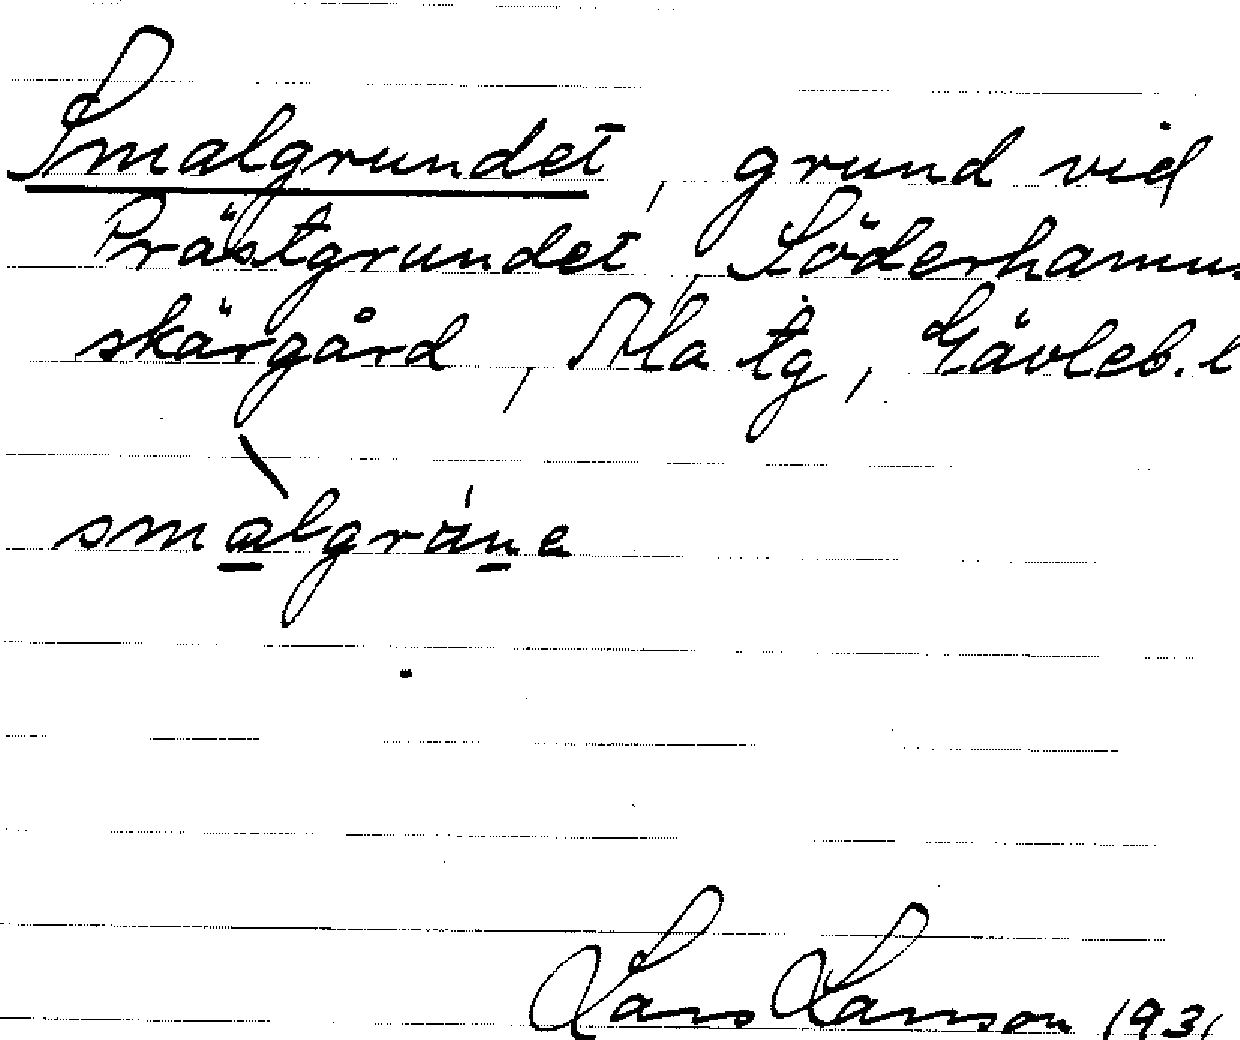 Smalgrundet, grund vid
Prästgrundet, Söderhamns
skärgård, Ala tg, Gävleb. l
smalgrune
Lars Larsson 1931